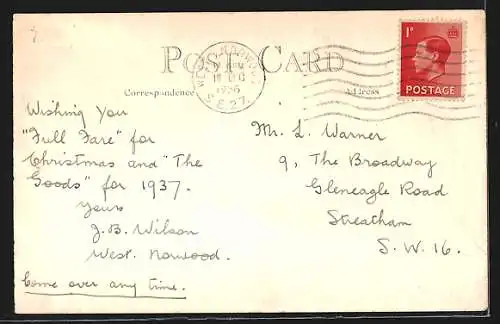 POST CARD
Correspondence
Address
WEST NORWOOD
1936
S.E.27.
1D
POSTAGE
Wishing You
"Full Fare" for
Christmas and "The
Goods" for 1937.
Yours
J.B. Wilson
West. Norwood.
Come over any time.
Mr. L. Warner
9, The Broadway
Gleneagle Road
Streatham
S.W.16.